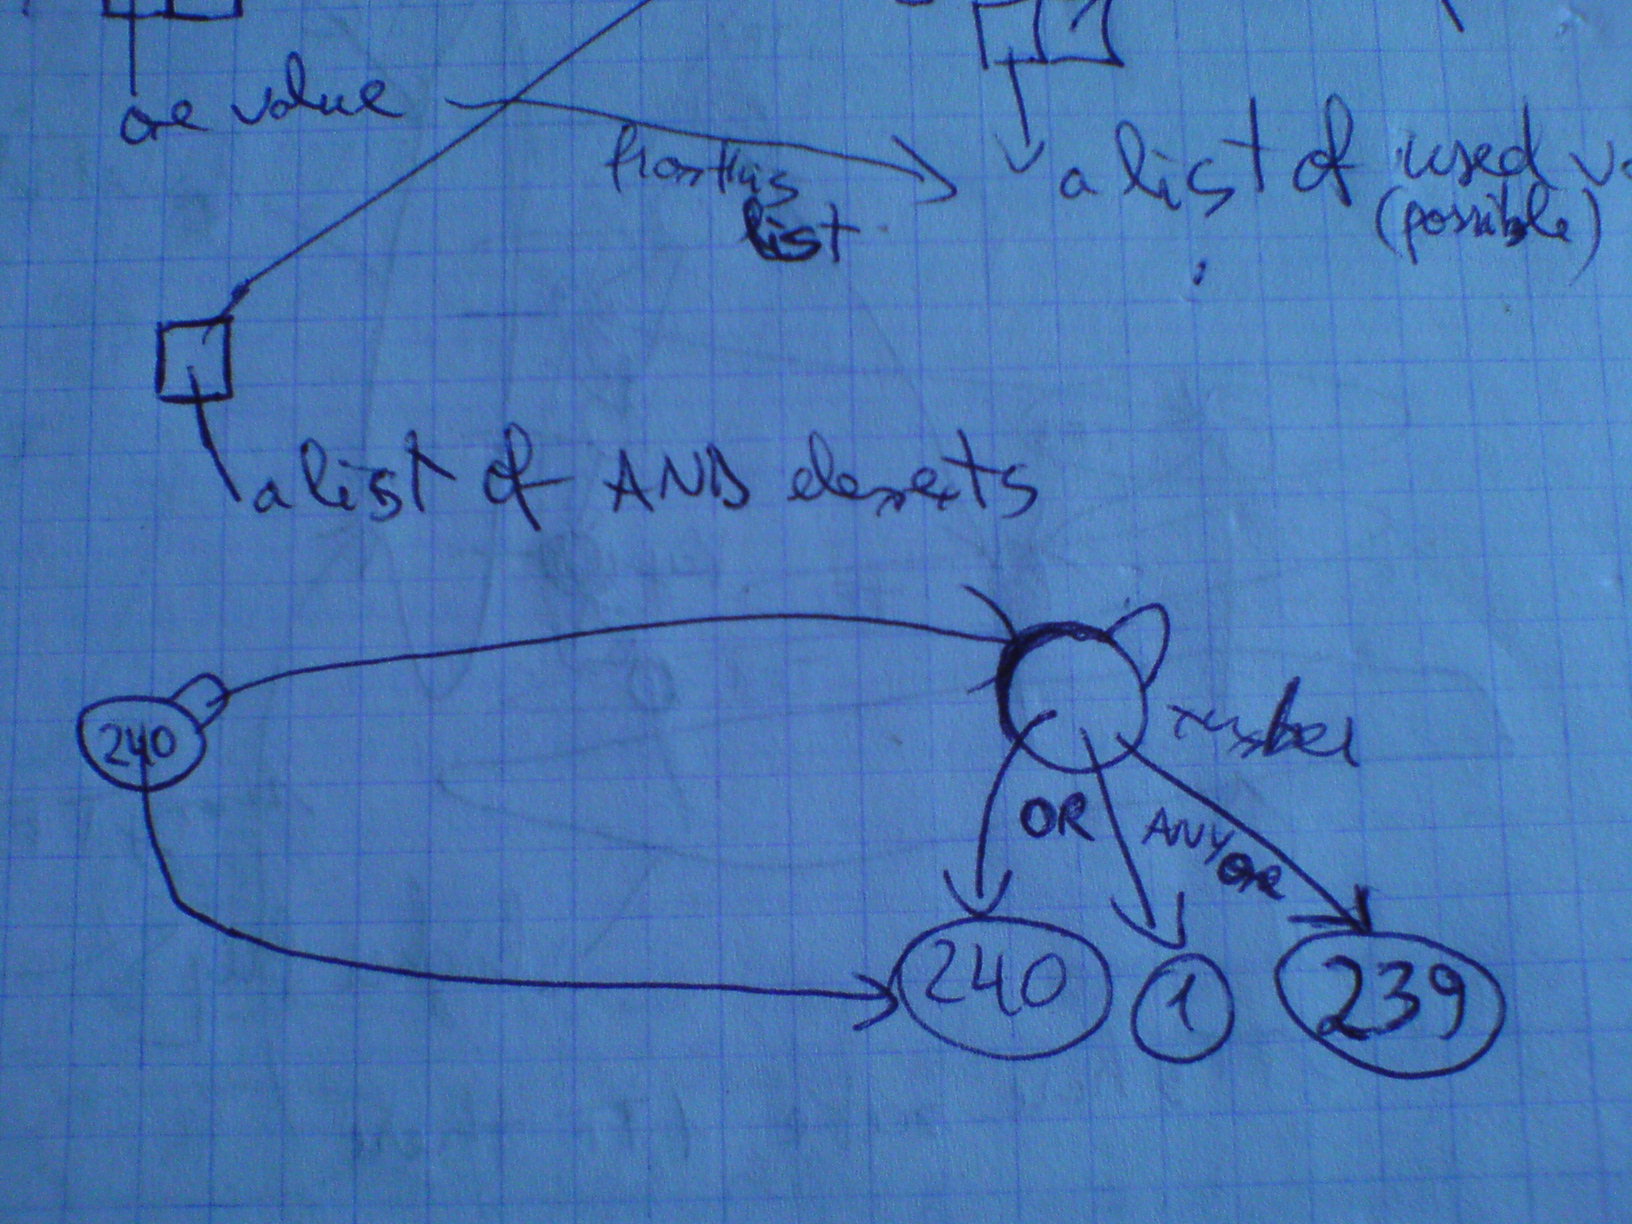 one value
from this
list
a list of used
(possible)
a list of AND elements
240
number
OR
ANY
one
240
1
239